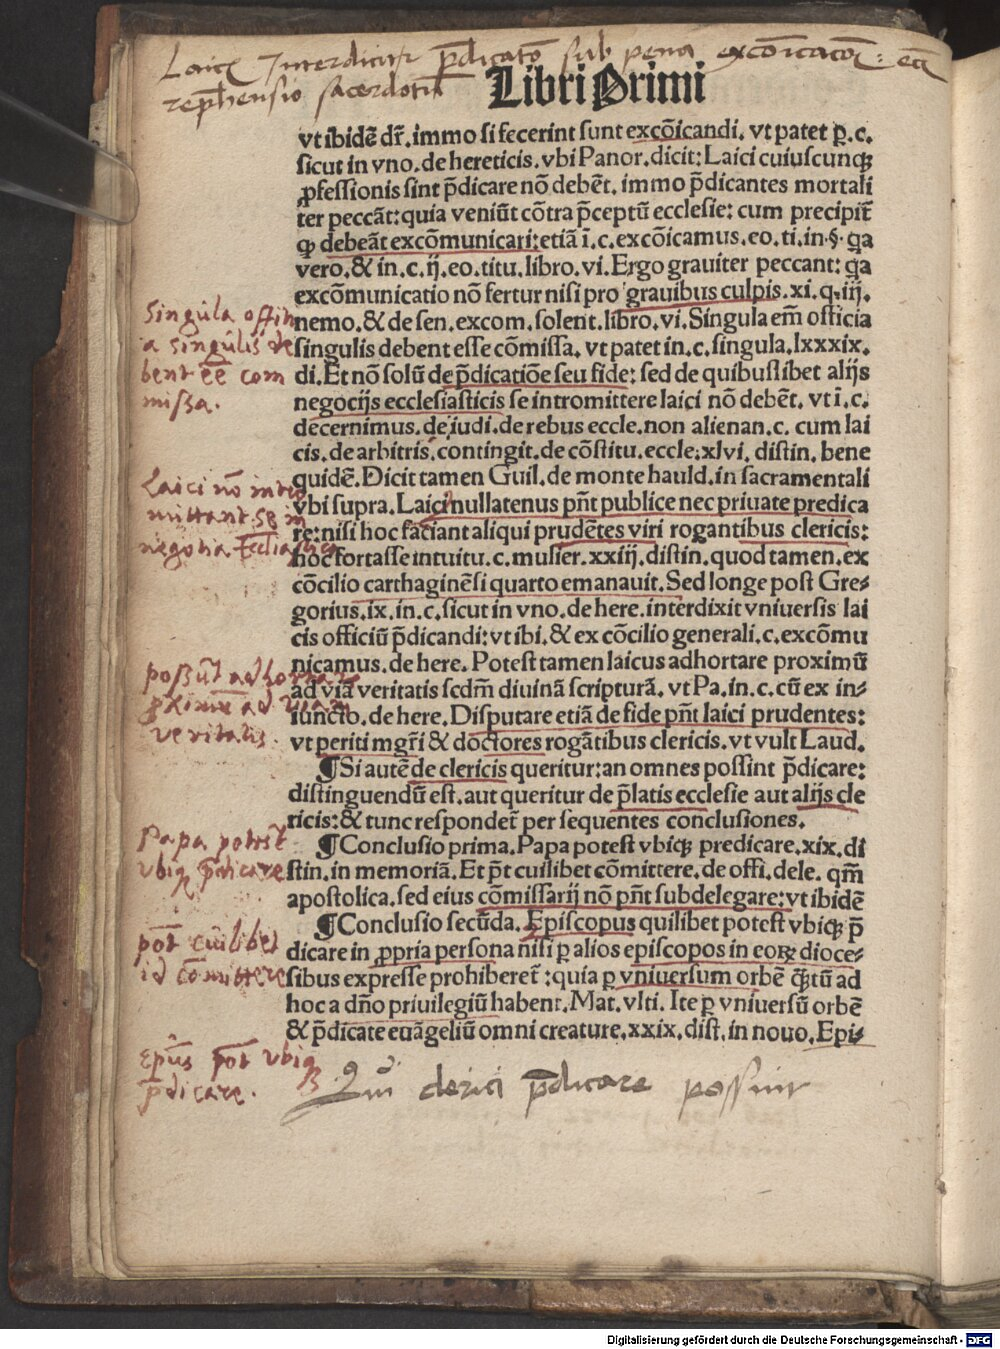 Laicꝭ Interdicitr p̄dicatō sub pena excōicacōꝭ: ecꝭ
rep̄hensio sacerdotū
Libri Primi
vt ibidē dr̄. immo si fecerint sunt excōicandi. vt patet ꝑ. c.
sicut in vno. de hereticis. vbi Panor. dicit: Laici cuiuscunqꝫ
ꝓfessionis sint p̄dicare nō debēt. immo p̄dicantes mortali
ter peccāt: quia veniūt cōtra p̄ceptū ecclesie: cum precipit̄
ꝙ debeāt excōmunicari: etiā ī. c. excōicamus. eo. ti. in. §. q̄a
vero. & in. c. ij. eo. titu. libro. vi. Ergo grauiter peccant: q̄a
excōmunicatio nō fertur nisi pro grauibus culpis. xi. q. iij.
nemo. & de sen. excom. solent. libro. vi. Singula em̄ officia
singulis debent esse cōmissa. vt patet in. c. singula. lxxxix.
di. Et nō solū de p̄dicatiōe seu fide: sed de quibuslibet alijs
negocijs ecclesiasticis se intromittere laici nō debēt. vt ī. c.
decernimus. de iudi. de rebus eccle. non alienan. c. cum lai
cis. de arbitris. contingit. de cōstitu. eccle: xlvi. distin. bene
quidē. Dicit tamen Guil. de monte hauld. in sacramentali
vbi supra. Laici nullatenus pn̄t publice nec priuate predica
re: nisi hoc faciant aliqui prudētes viri rogantibus clericis:
hoc fortasse intuitu. c. mulier. xxiij. distin. quod tamen. ex
cōcilio carthaginēsi quarto emanauit. Sed longe post Gre⸗
gorius. ix. in. c. sicut in vno. de here. interdixit vniuersis lai
cis officiū p̄dicandi: vt ibi. & ex cōcilio generali. c. excōmu
nicamus. de here. Potest tamen laicus adhortare proximū
ad viā veritatis scdm̄ diuinā scripturā. vt Pa. in. c. cū ex in⸗
iuncto. de here. Disputare etiā de fide pn̄t laici prudentes:
vt periti mgr̄i & doctores rogātibus clericis. vt vult Laud.
¶ Si autē de clericis queritur: an omnes possint p̄dicare:
distinguendū est. aut queritur de p̄latis ecclesie aut alijs cle
ricis: & tunc respondet̄ per sequentes conclusiones.
¶ Conclusio prima. Papa potest vbiqꝫ predicare. xix. di
stin. in memoriā. Et p̄t cuilibet cōmittere. de offi. dele. qm̄
apostolica. sed eius cōmissarij nō pn̄t subdelegare: vt ibidē
¶ Conclusio secūda. Episcopus quilibet potest vbiqꝫ p̄
dicare in ꝓpria persona nisi ꝑ alios episcopos in eoꝝ dioce⸗
sibus expresse prohiberet̄: quia ꝑ vniuersum orbē q̄stū ad
hoc a dño priuilegiū habent. Mat. vlti. Ite ꝑ vniuersū orbē
& p̄dicate euāgeliū omni creature. xxix. dist. in nouo. Epi⸗
Singula offici
a singulis de
bent eē com
missa.
Laici nō intro
mittant se in
negotia Ecclīastica
possūt adhortare
ꝓximū ad viam
veritatis
Papa potest
vbiqꝫ p̄dicare
pōt cuilibet
id cōmittere
Ep̄us pōt vbiqꝫ
p̄dicare.
Qui clerici p̄dicare possint
Digitalisierung gefördert durch die Deutsche Forschungsgemeinschaft - DFG